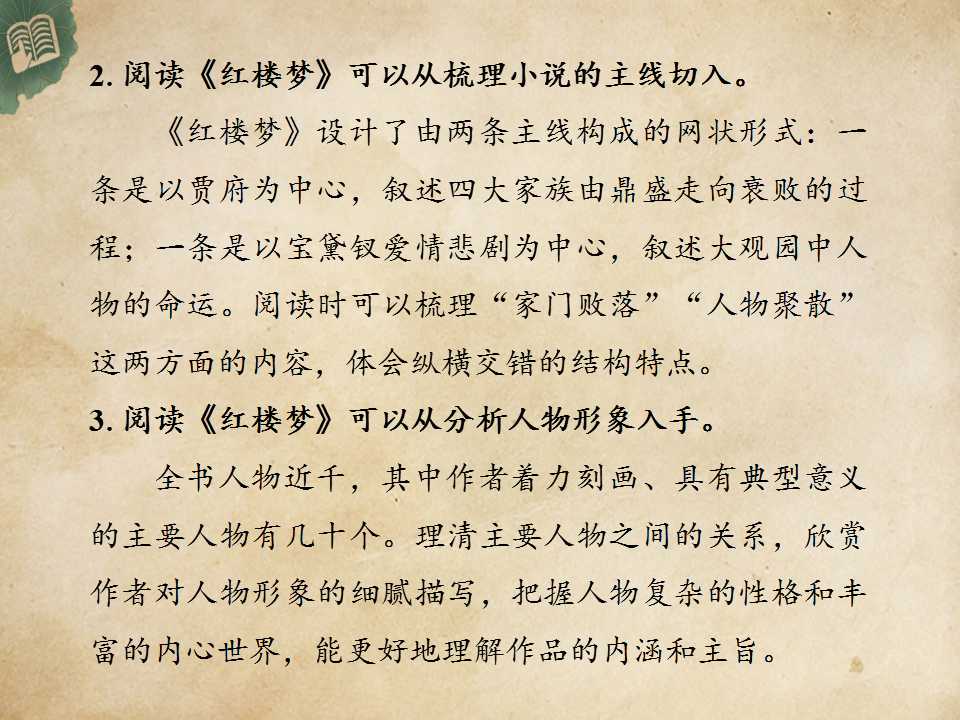 2. 阅读《红楼梦》可以从梳理小说的主线切入。
《红楼梦》设计了由两条主线构成的网状形式：一
条是以贾府为中心，叙述四大家族由鼎盛走向衰败的过
程；一条是以宝黛钗爱情悲剧为中心，叙述大观园中人
物的命运。阅读时可以梳理“家门败落”“人物聚散”
这两方面的内容，体会纵横交错的结构特点。
3. 阅读《红楼梦》可以从分析人物形象入手。
全书人物近千，其中作者着力刻画、具有典型意义
的主要人物有几十个。理清主要人物之间的关系，欣赏
作者对人物形象的细腻描写，把握人物复杂的性格和丰
富的内心世界，能更好地理解作品的内涵和主旨。